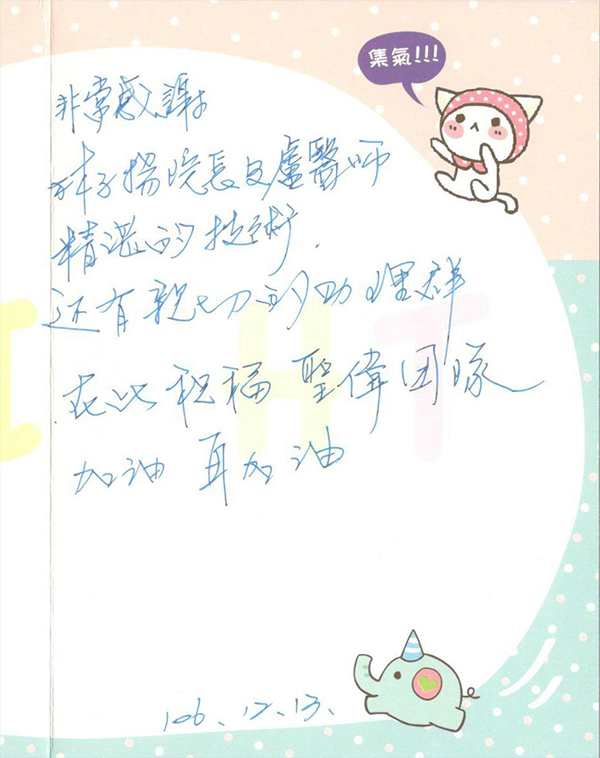 集氣!!!
非常感謝
林子揚院長及盧醫師
精湛的技術.
还有親切的助理群
在此祝福 聖偉团隊
加油 再加油
106.12.13.